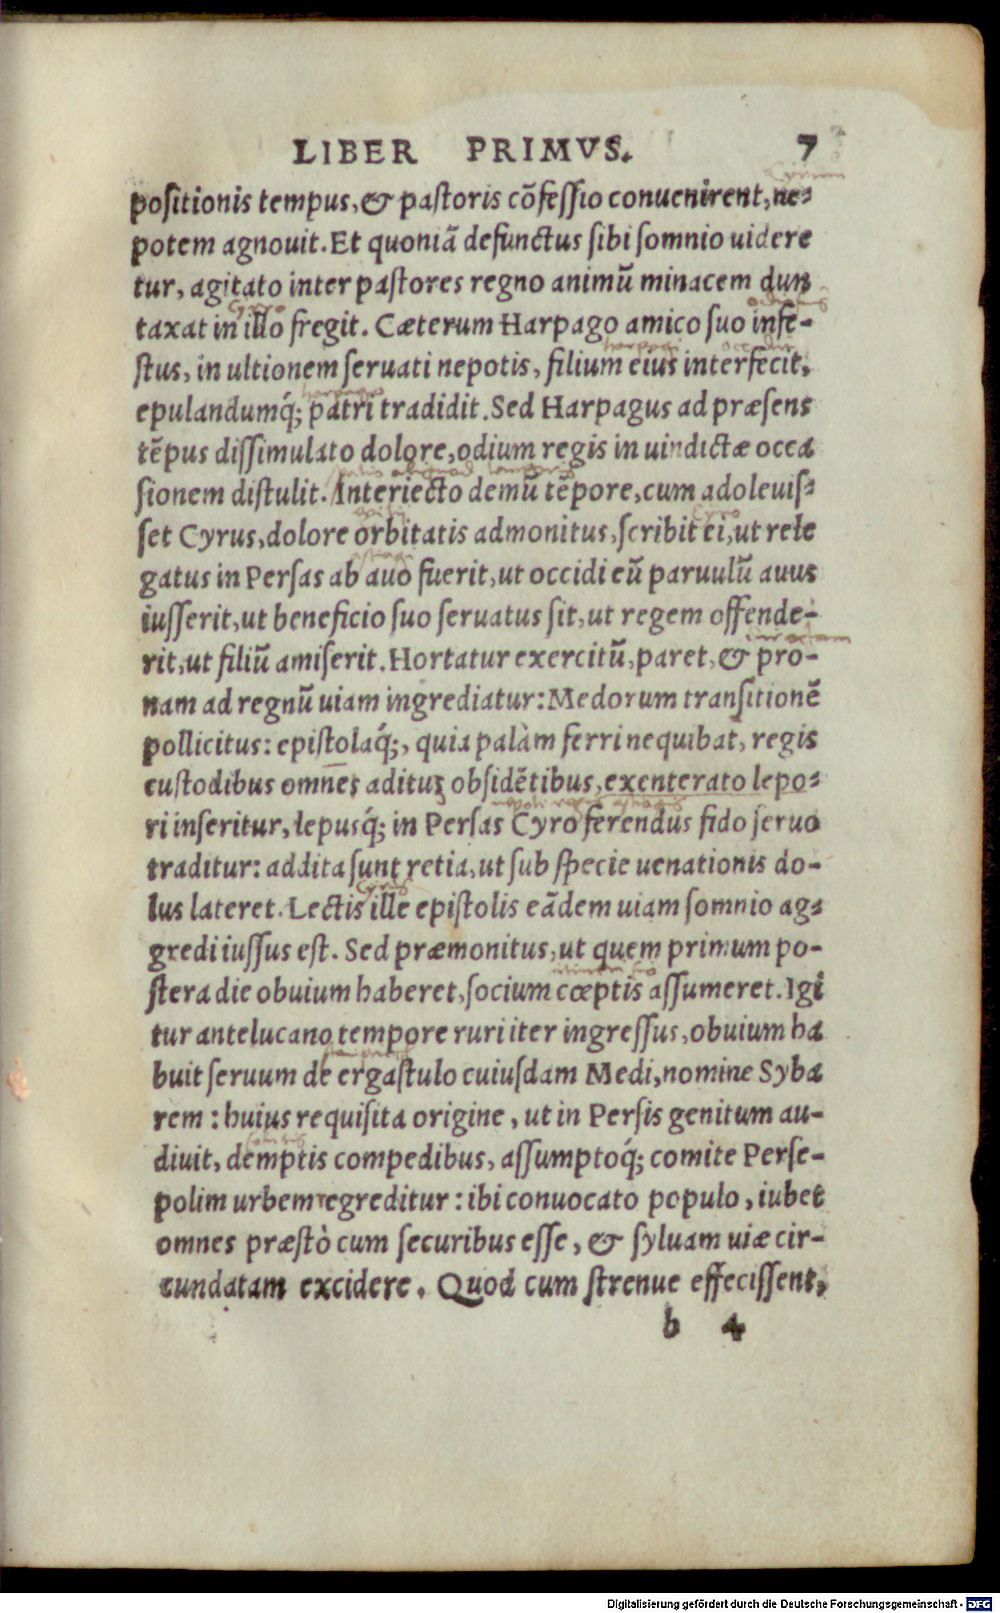 LIBER PRIMVS. 7
Cyrum
positionis tempus, & pastoris cõfessio conuenirent, ne-
potem agnouit. Et quoniã defunctus sibi somnio uidere
tur, agitato inter pastores regno animũ minacem dun
Cyro
taxat in illo fregit. Cæterum Harpago amico suo infe-
harpagi occidit
stus, in ultionem seruati nepotis, filium eius interfecit,
harpago
epulandumq́; patri tradidit. Sed Harpagus ad præsens
tẽpus dissimulato dolore, odium regis in uindictæ occa
sionem distulit. Interiecto demũ tẽpore, cum adoleuis-
Cyro
set Cyrus, dolore orbitatis admonitus, scribit ei, ut rele
gatus in Persas ab auo fuerit, ut occidi eũ paruulũ auus
iusserit, ut beneficio suo seruatus sit, ut regem offende-
rit, ut filiũ amiserit. Hortatur exercitũ, paret, & pro-
nam ad regnũ uiam ingrediatur: Medorum transitionẽ
pollicitus: epistolaq́;, quia palàm ferri nequibat, regis
custodibus omnes aditus obsidẽtibus, exenterato lepo-
ri inseritur, lepusq́; in Persas Cyro ferendus fido seruo
traditur: addita sunt retia, ut sub specie uenationis do-
Cyrus
lus lateret. Lectis ille epistolis eãdem uiam somnio ag-
gredi iussus est. Sed præmonitus, ut quem primum po-
stera die obuium haberet, socium cœptis assumeret. Igi
tur antelucano tempore ruri iter ingressus, obuium ha
buit seruum de ergastulo cuiusdam Medi, nomine Syba
rem: huius requisita origine, ut in Persis genitum au-
diuit, demptis compedibus, assumptoq́; comite Perse-
polim urbem regreditur: ibi conuocato populo, iubet
omnes præstò cum securibus esse, & syluam uiæ cir-
cundatam excidere. Quod cum strenue effecissent,
b 4
Digitalisierung gefördert durch die Deutsche Forschungsgemeinschaft - DFG